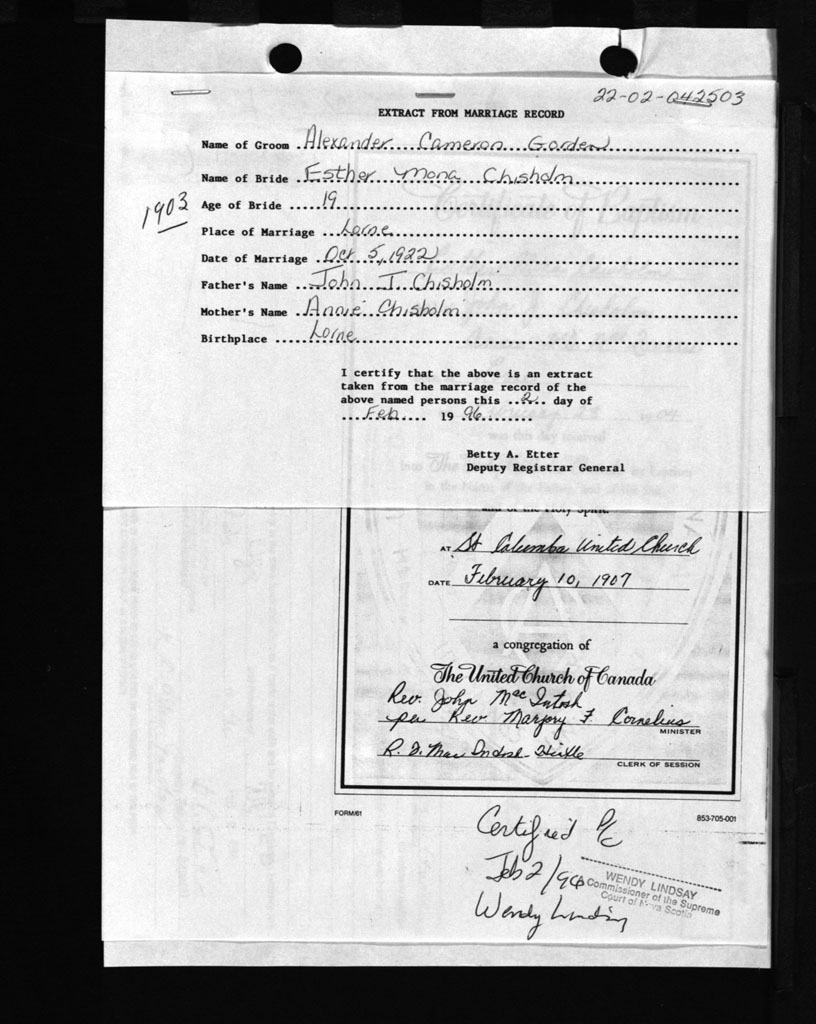 22-02-042503
EXTRACT FROM MARRIAGE RECORD
Name of Groom Alexander Cameron Gordon
Name of Bride Esther Mona Chisholm
1903 Age of Bride 19
Place of Marriage Lorne
Date of Marriage Oct 5, 1922
Father's Name John J. Chisholm
Mother's Name Annie Chisholm
Birthplace Lorne
I certify that the above is an extract
taken from the marriage record of the
above named persons this ..2.. day of
Feb 19 96
Betty A. Etter
Deputy Registrar General
and of the Holy Spirit.
AT St Columba United Church
DATE February 10, 1907
a congregation of
The United Church of Canada
Rev. John MacIntosh
per Rev. Marjory F. Cornelius
MINISTER
R. D. Mac
CLERK OF SESSION
FORM/61 853-705-001
Certified P/C
Feb 2/96
Wendy Lindsay
WENDY LINDSAY
Commissioner of the Supreme
Court of Nova Scotia